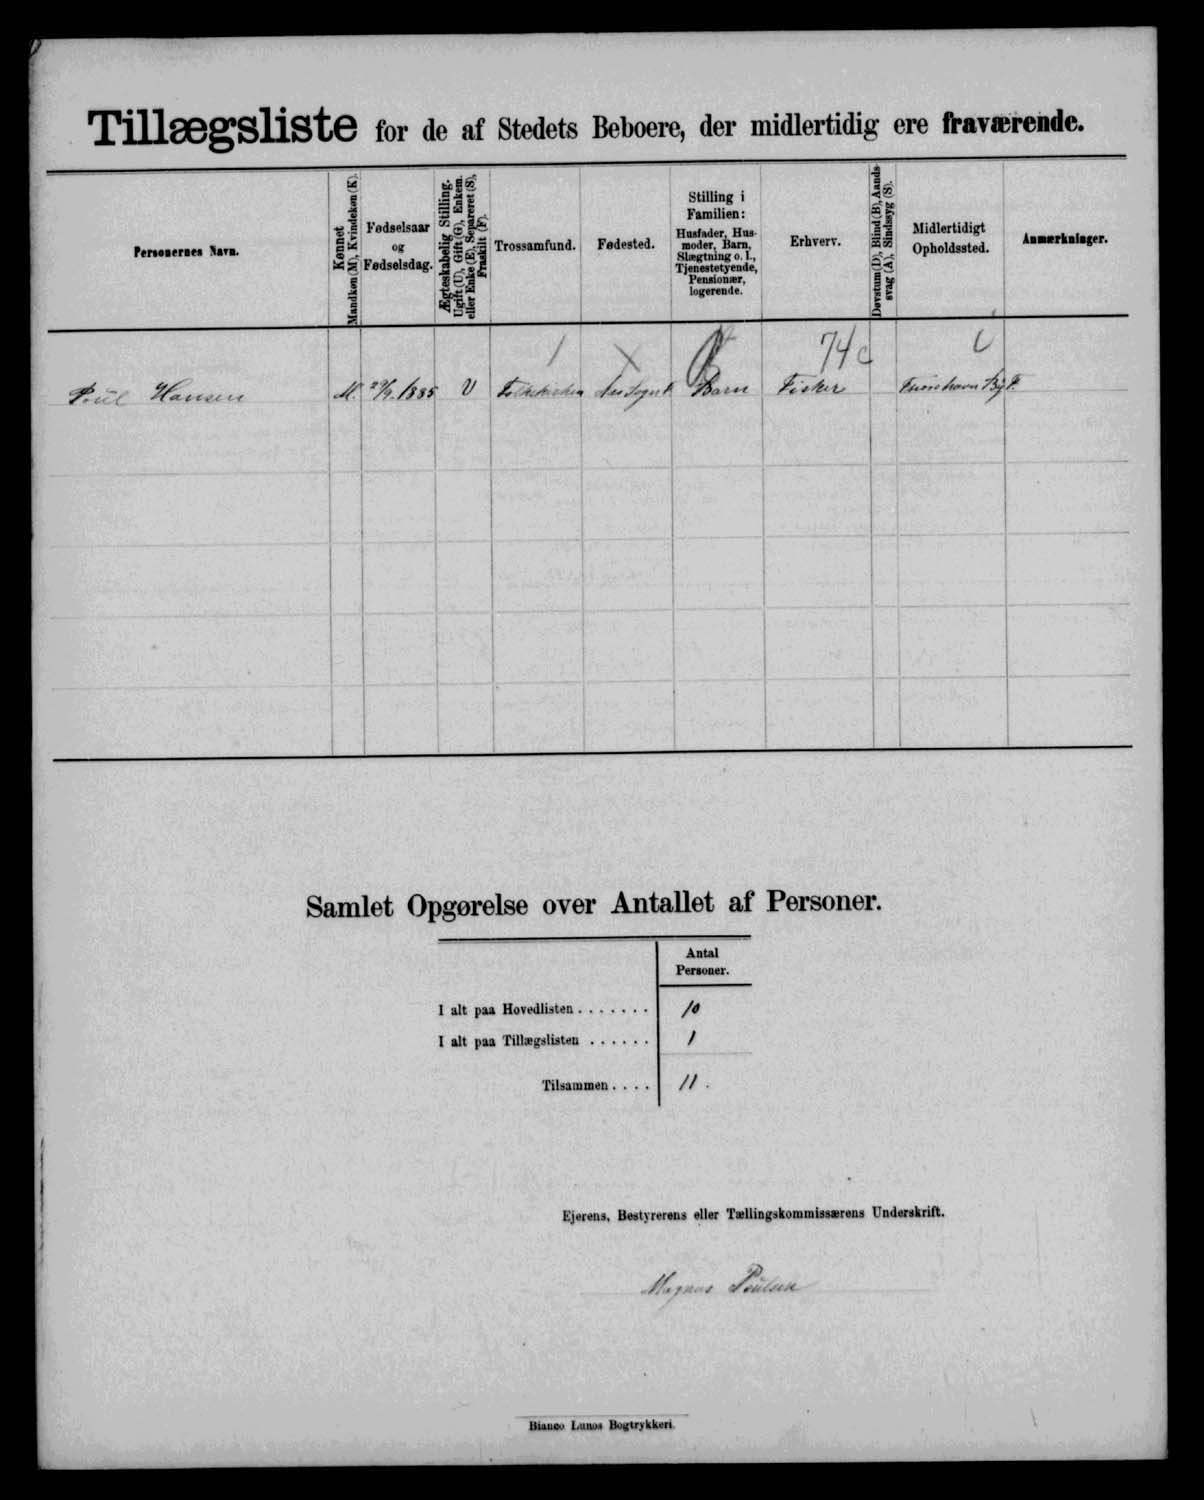 Tillægsliste for de af Stedets Beboere, der midlertidig ere fraværende.
Personernes Navn.
Kønnet
Mandkøn (M), Kvindekøn (K).
Fødselsaar
og
Fødselsdag.
Ægteskabelig Stilling.
Ugift (U), Gift (G), Enkem.
eller Enke (E), Separeret (S),
Fraskilt (F).
Trossamfund.
Fødested.
Stilling i
Familien:
Husfader, Hus-
moder, Barn,
Slægtning o. l.,
Tjenestetyende,
Pensionær,
logerende.
Erhverv.
Døvstum (D), Blind (B), Aands-
svag (A), Sindssyg (S).
Midlertidigt
Opholdssted.
Anmærkninger.
74 c
Poul Hansen M. 1885 U Folkekirken Nes Sogn F Barn Fisker By F.
Samlet Opgørelse over Antallet af Personer.
Antal
Personer.
I alt paa Hovedlisten . . . . . . . 10
I alt paa Tillægslisten . . . . . . 1
Tilsammen . . . . 11.
Ejerens, Bestyrerens eller Tællingskommissærens Underskrift.
Magnus Poulsen
Bianco Lunos Bogtrykkeri